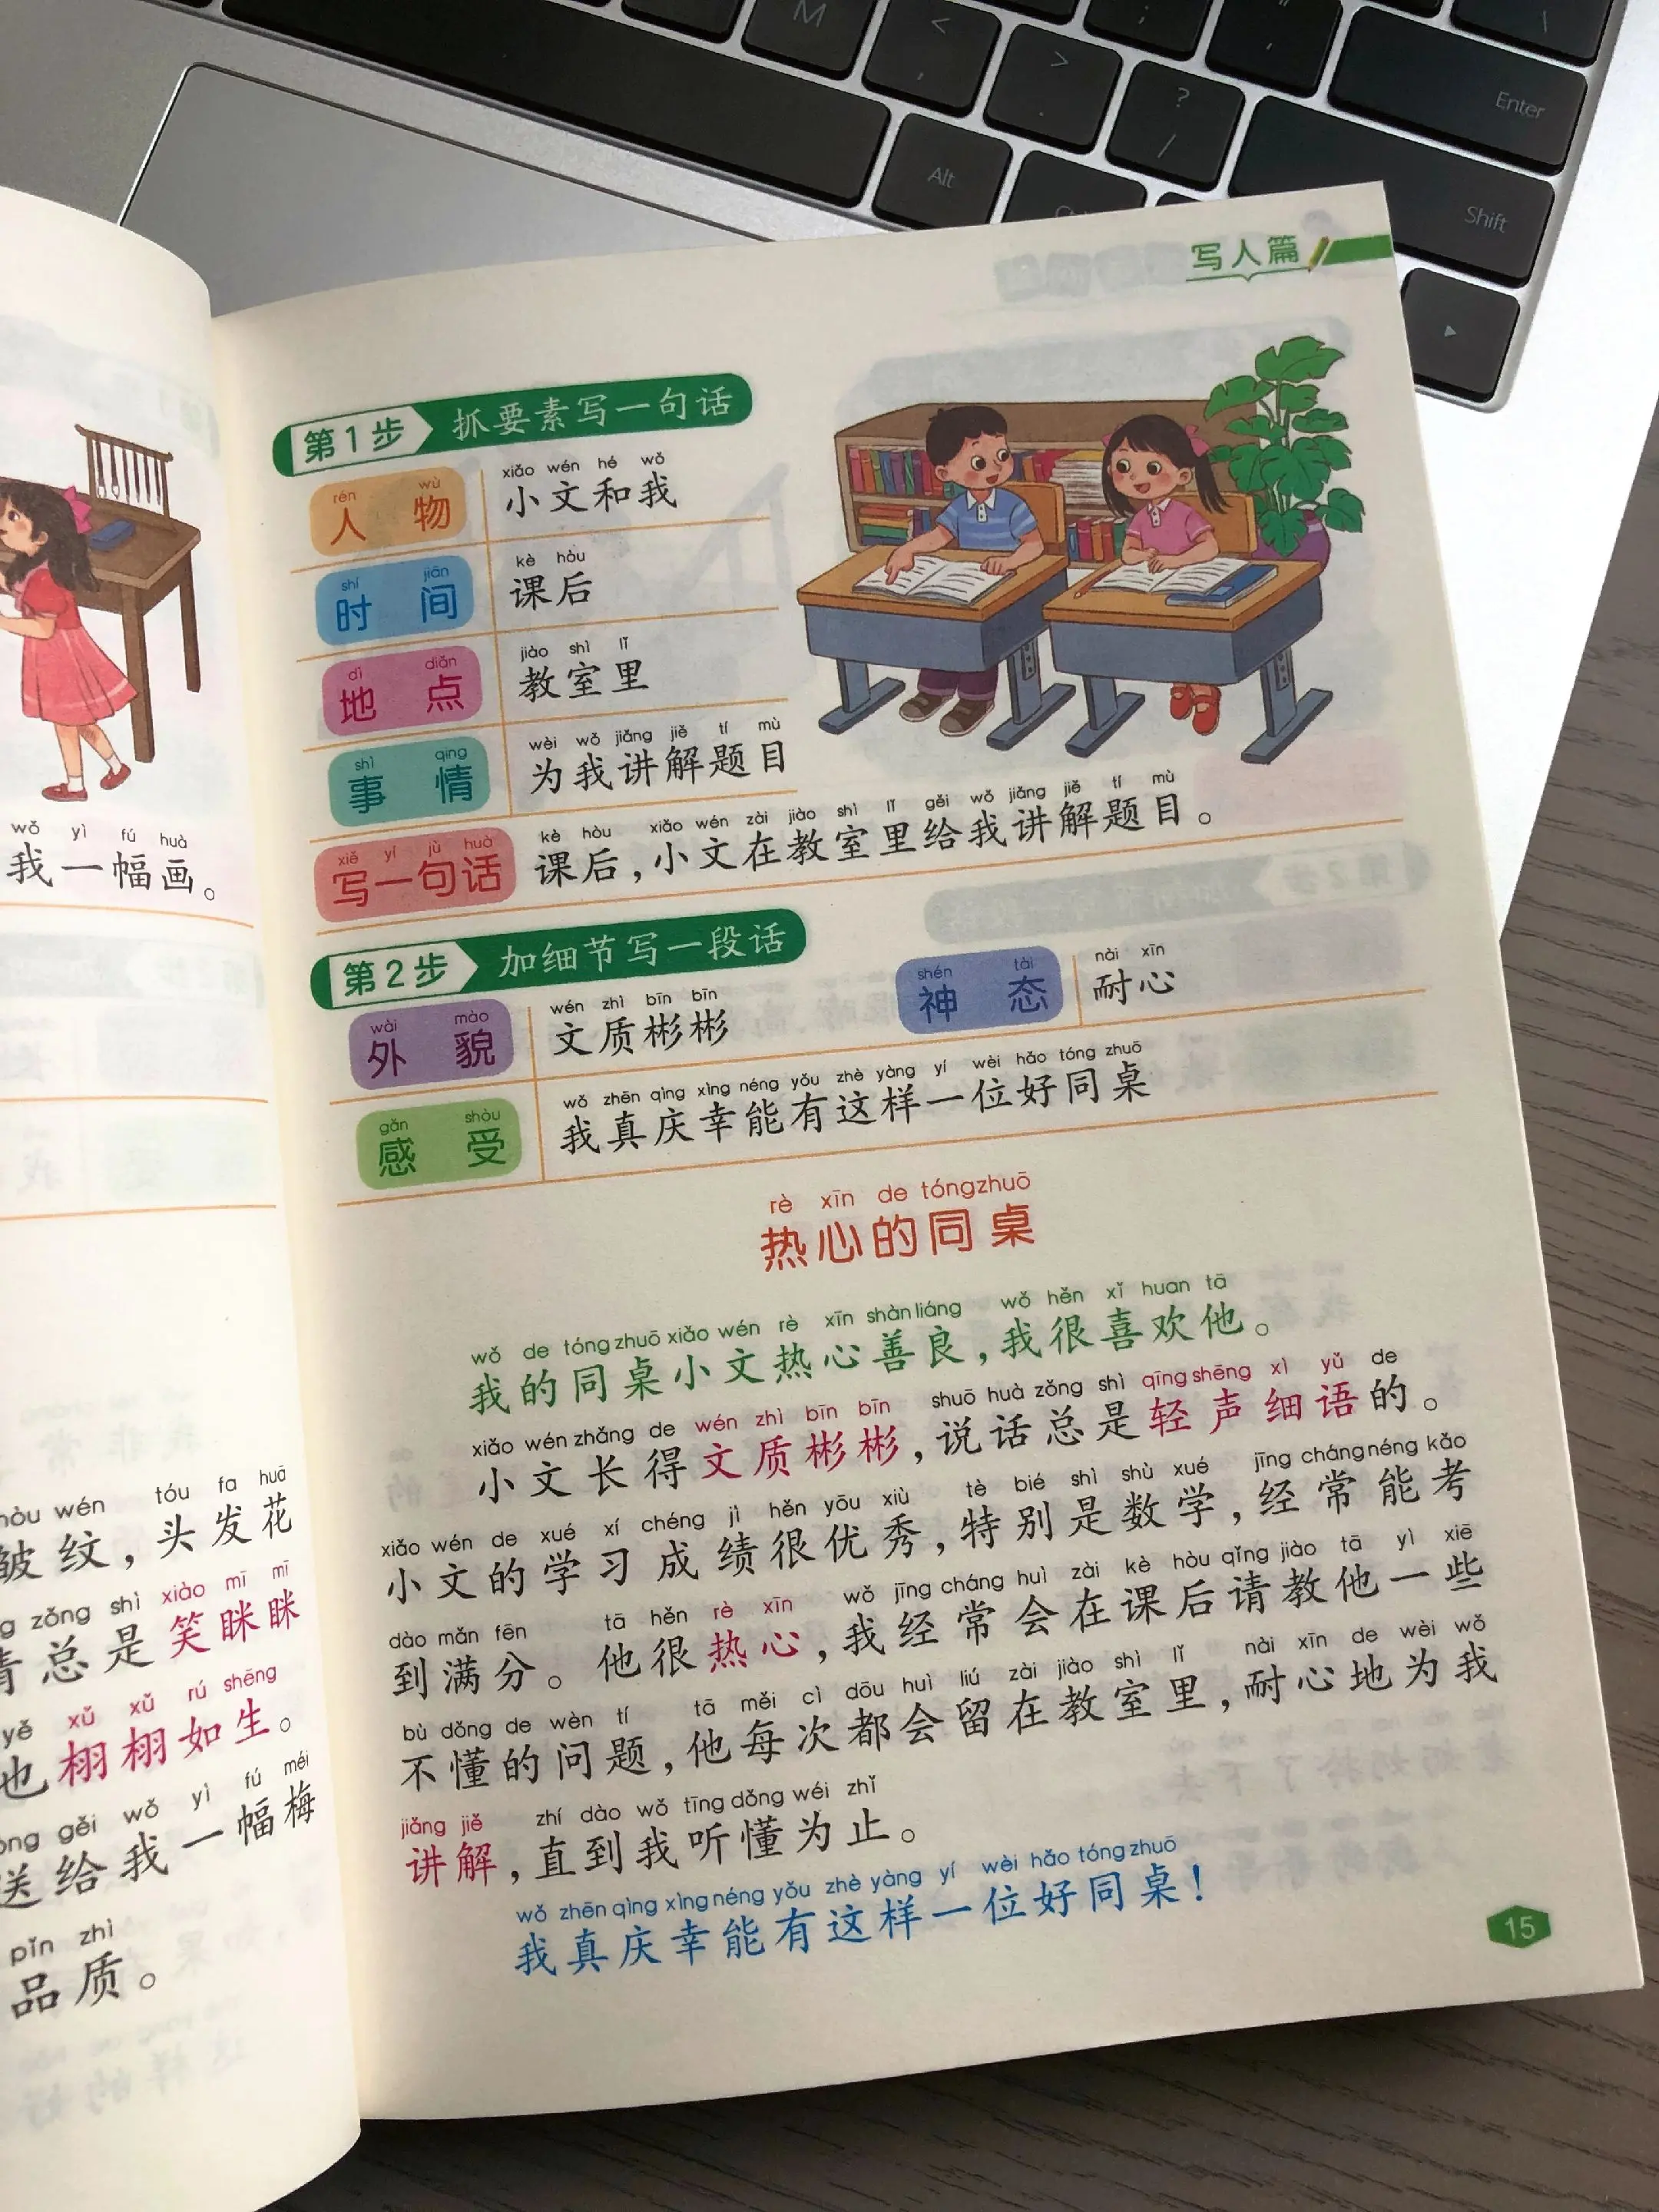 M
<
,
>
.
;
"
'
\
?
/
Enter
Alt
Shift
写人篇
第1步 抓要素写一句话
rén wù xiǎo wén hé wǒ
人物 小文和我
shí jiān kè hòu
时间 课后
dì diǎn jiào shì lǐ
地点 教室里
shì qing wèi wǒ jiǎng jiě tí mù
事情 为我讲解题目
xiě yí jù huà kè hòu xiǎo wén zài jiào shì lǐ gěi wǒ jiǎng jiě tí mù
写一句话 课后，小文在教室里给我讲解题目。
第2步 加细节写一段话
wài mào wén zhì bīn bīn shén tài nài xīn
外貌 文质彬彬 神态 耐心
gǎn shòu wǒ zhēn qìng xìng néng yǒu zhè yàng yí wèi hǎo tóng zhuō
感受 我真庆幸能有这样一位好同桌
rè xīn de tóng zhuō
热心的同桌
wǒ de tóng zhuō xiǎo wén rè xīn shàn liáng wǒ hěn xǐ huan tā
我的同桌小文热心善良，我很喜欢他。
xiǎo wén zhǎng de wén zhì bīn bīn shuō huà zǒng shì qīng shēng xì yǔ de
小文长得文质彬彬，说话总是轻声细语的。
xiǎo wén de xué xí chéng jì hěn yōu xiù tè bié shì shù xué jīng cháng néng kǎo
小文的学习成绩很优秀，特别是数学，经常能考
dào mǎn fēn tā hěn rè xīn wǒ jīng cháng huì zài kè hòu qǐng jiào tā yì xiē
到满分。他很热心，我经常会在课后请教他一些
bù dǒng de wèn tí tā měi cì dōu huì liú zài jiào shì lǐ nài xīn de wèi wǒ
不懂的问题，他每次都会留在教室里，耐心地为我
jiǎng jiě zhí dào wǒ tīng dǒng wéi zhǐ
讲解，直到我听懂为止。
wǒ zhēn qìng xìng néng yǒu zhè yàng yí wèi hǎo tóng zhuō
我真庆幸能有这样一位好同桌！
15
wǒ yì fú huà
我一幅画。
wén tóu fa huā
皱纹，头发花
zǒng shì xiào mī mī
总是笑眯眯
yě xǔ xǔ rú shēng
也栩栩如生。
gěi wǒ yì fú méi
送给我一幅梅
pǐn zhì
品质。